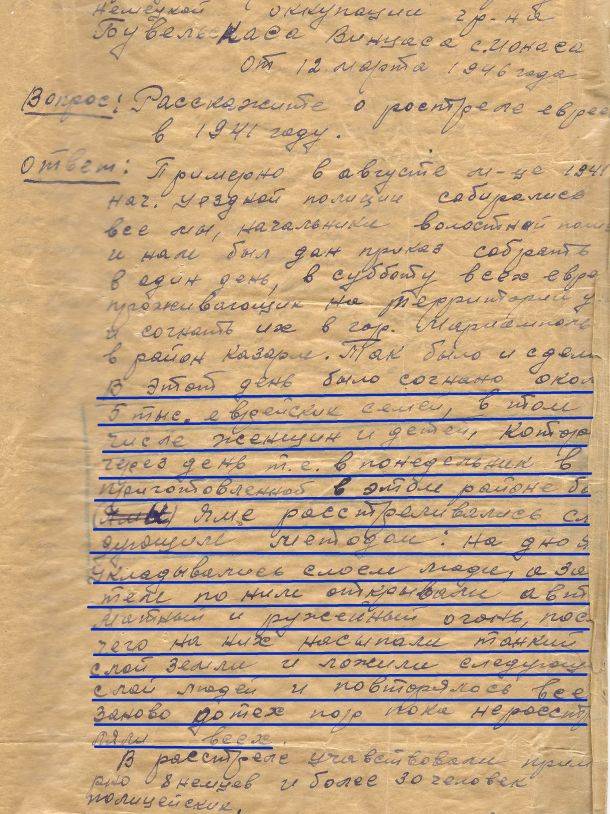 немецкой оккупации гр-на
Бувельскаса Винцаса с. Ионаса
От 12 марта 1946 года
Вопрос: Расскажите о росстреле евре
в 1941 году.
Ответ: Примерно в августе м-це 1941
нач. уездной полиции собирались
все мы, начальники волостной пол
и нам был дан приказ собрать
в один день, в субботу всех евре
проживающих на территории у
и согнать их в гор. Мариамполь
в район казарм. Так было и сдела
В этот день было согнано окол
5 тыс. еврейских семей, в том
числе женщин и детей, котор
через день т.е. в понедельник в
приготовленной в этом районе бы
яме расстреливались сл
дующим методом: на дно
укладывались слоем люди, а за
тем по ним открывали авт
матный и ружейный огонь, пос
чего на них насыпали тонкий
слой земли и ложили следующ
слой людей и повторялось все
заново до тех пор пока не расст
ляли всех.
В расстреле учавствовали прим
рно 8 немцев и более 30 человек
полицейских.